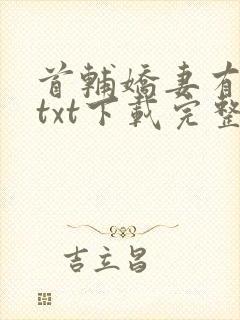 首輔嬌妻有
txt下載完整
吉立昌